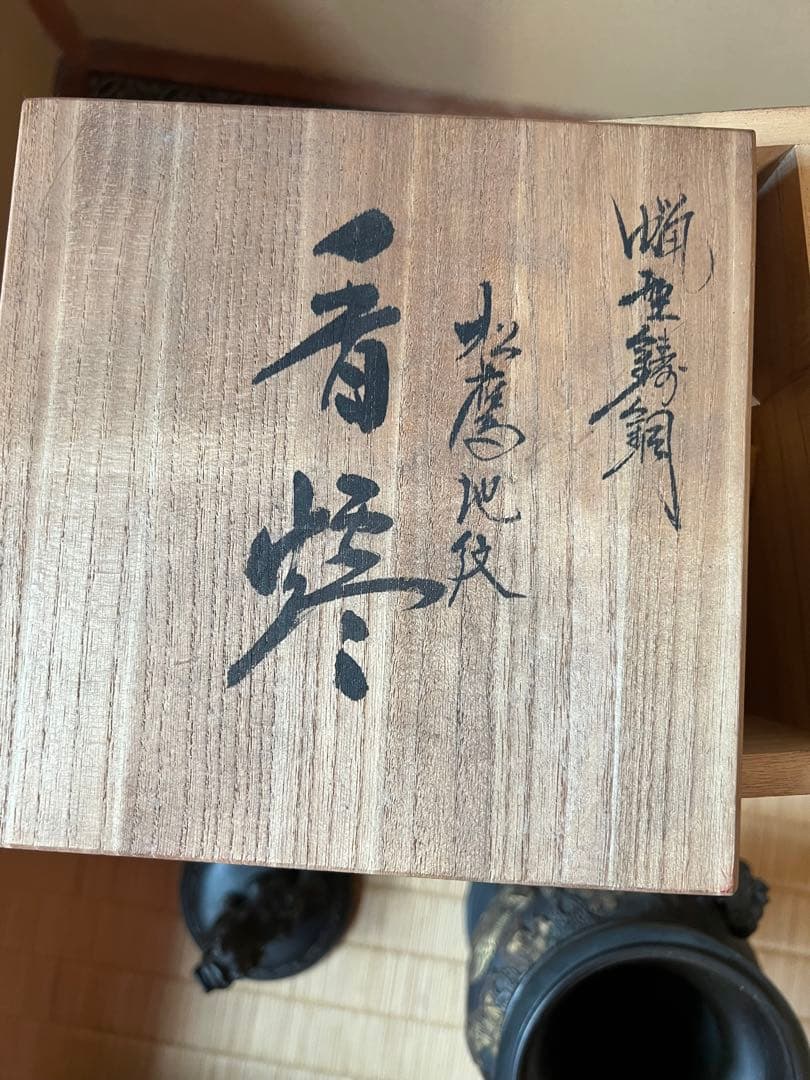 蝋型鋳銅
松鷹地紋
香炉